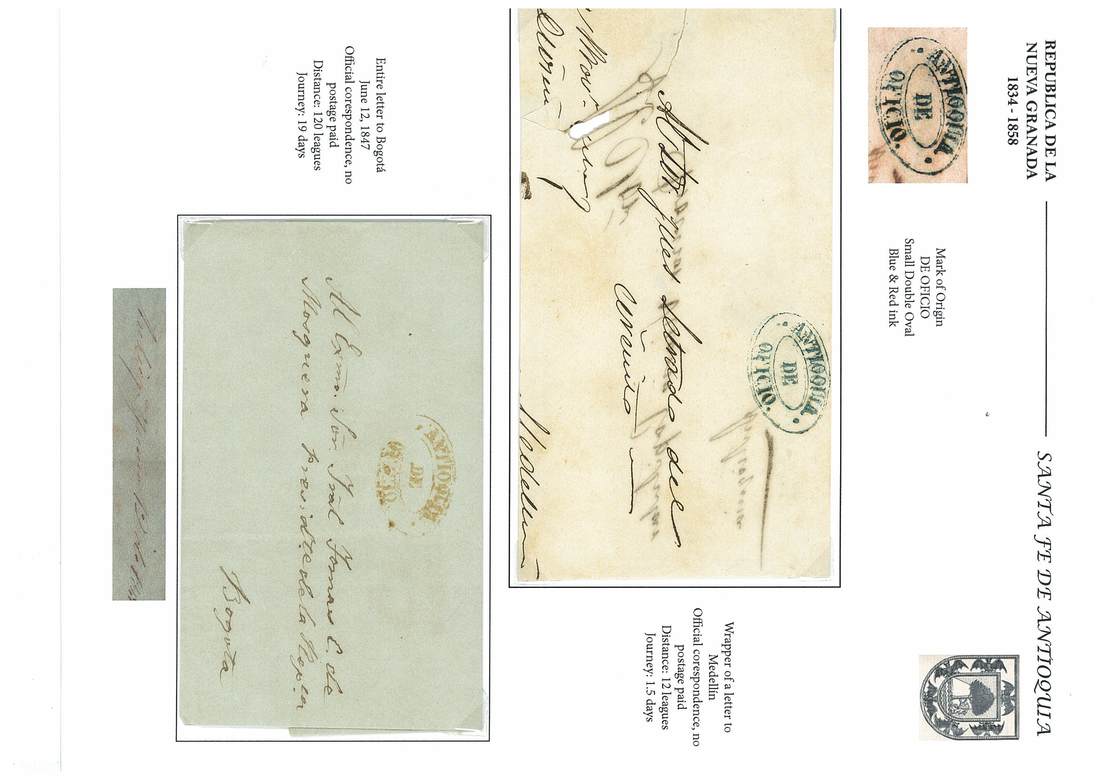 REPUBLICA DE LA
NUEVA GRANADA
1834 - 1858
SANTA FE DE ANTIOQUIA
ANTIOQUIA
DE
OFICIO.
Mark of Origin
DE OFICIO
Small Double Oval
Blue & Red ink
ANTIOQUIA
DE
OFICIO.
Al Sor. Juez Letrado del
circuito
Medellin
Wrapper of a letter to
Medellin
Official corespondence, no
postage paid
Distance: 12 leagues
Journey: 1.5 days
Entire letter to Bogotá
June 12, 1847
Official corespondence, no
postage paid
Distance: 120 leagues
Journey: 19 days
ANTIOQUIA
DE
OFICIO
Al Exmo. Sor. Jral Tomas C. de
Mosquera presidte. de la Repca
Bogota